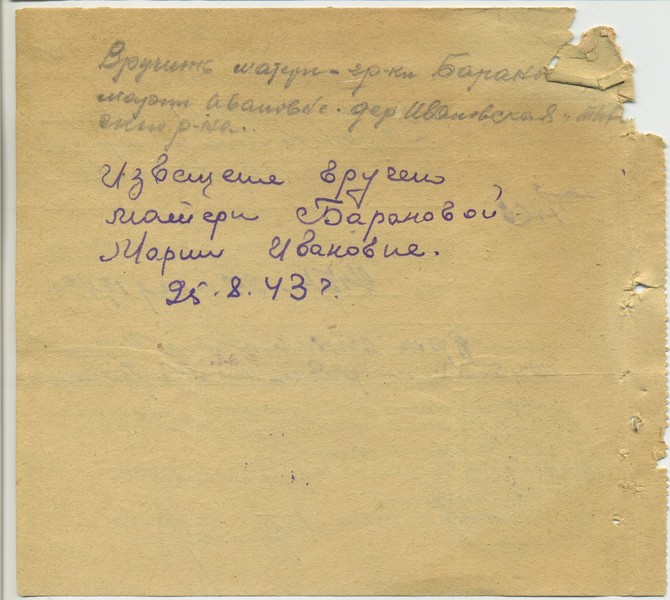 Вручить матери - гр-ки Барано
марии Ивановне. дер Ивановская
ского р-на.
Извещение вручено
матери Барановой
Марии Ивановне.
25.8.43 г.